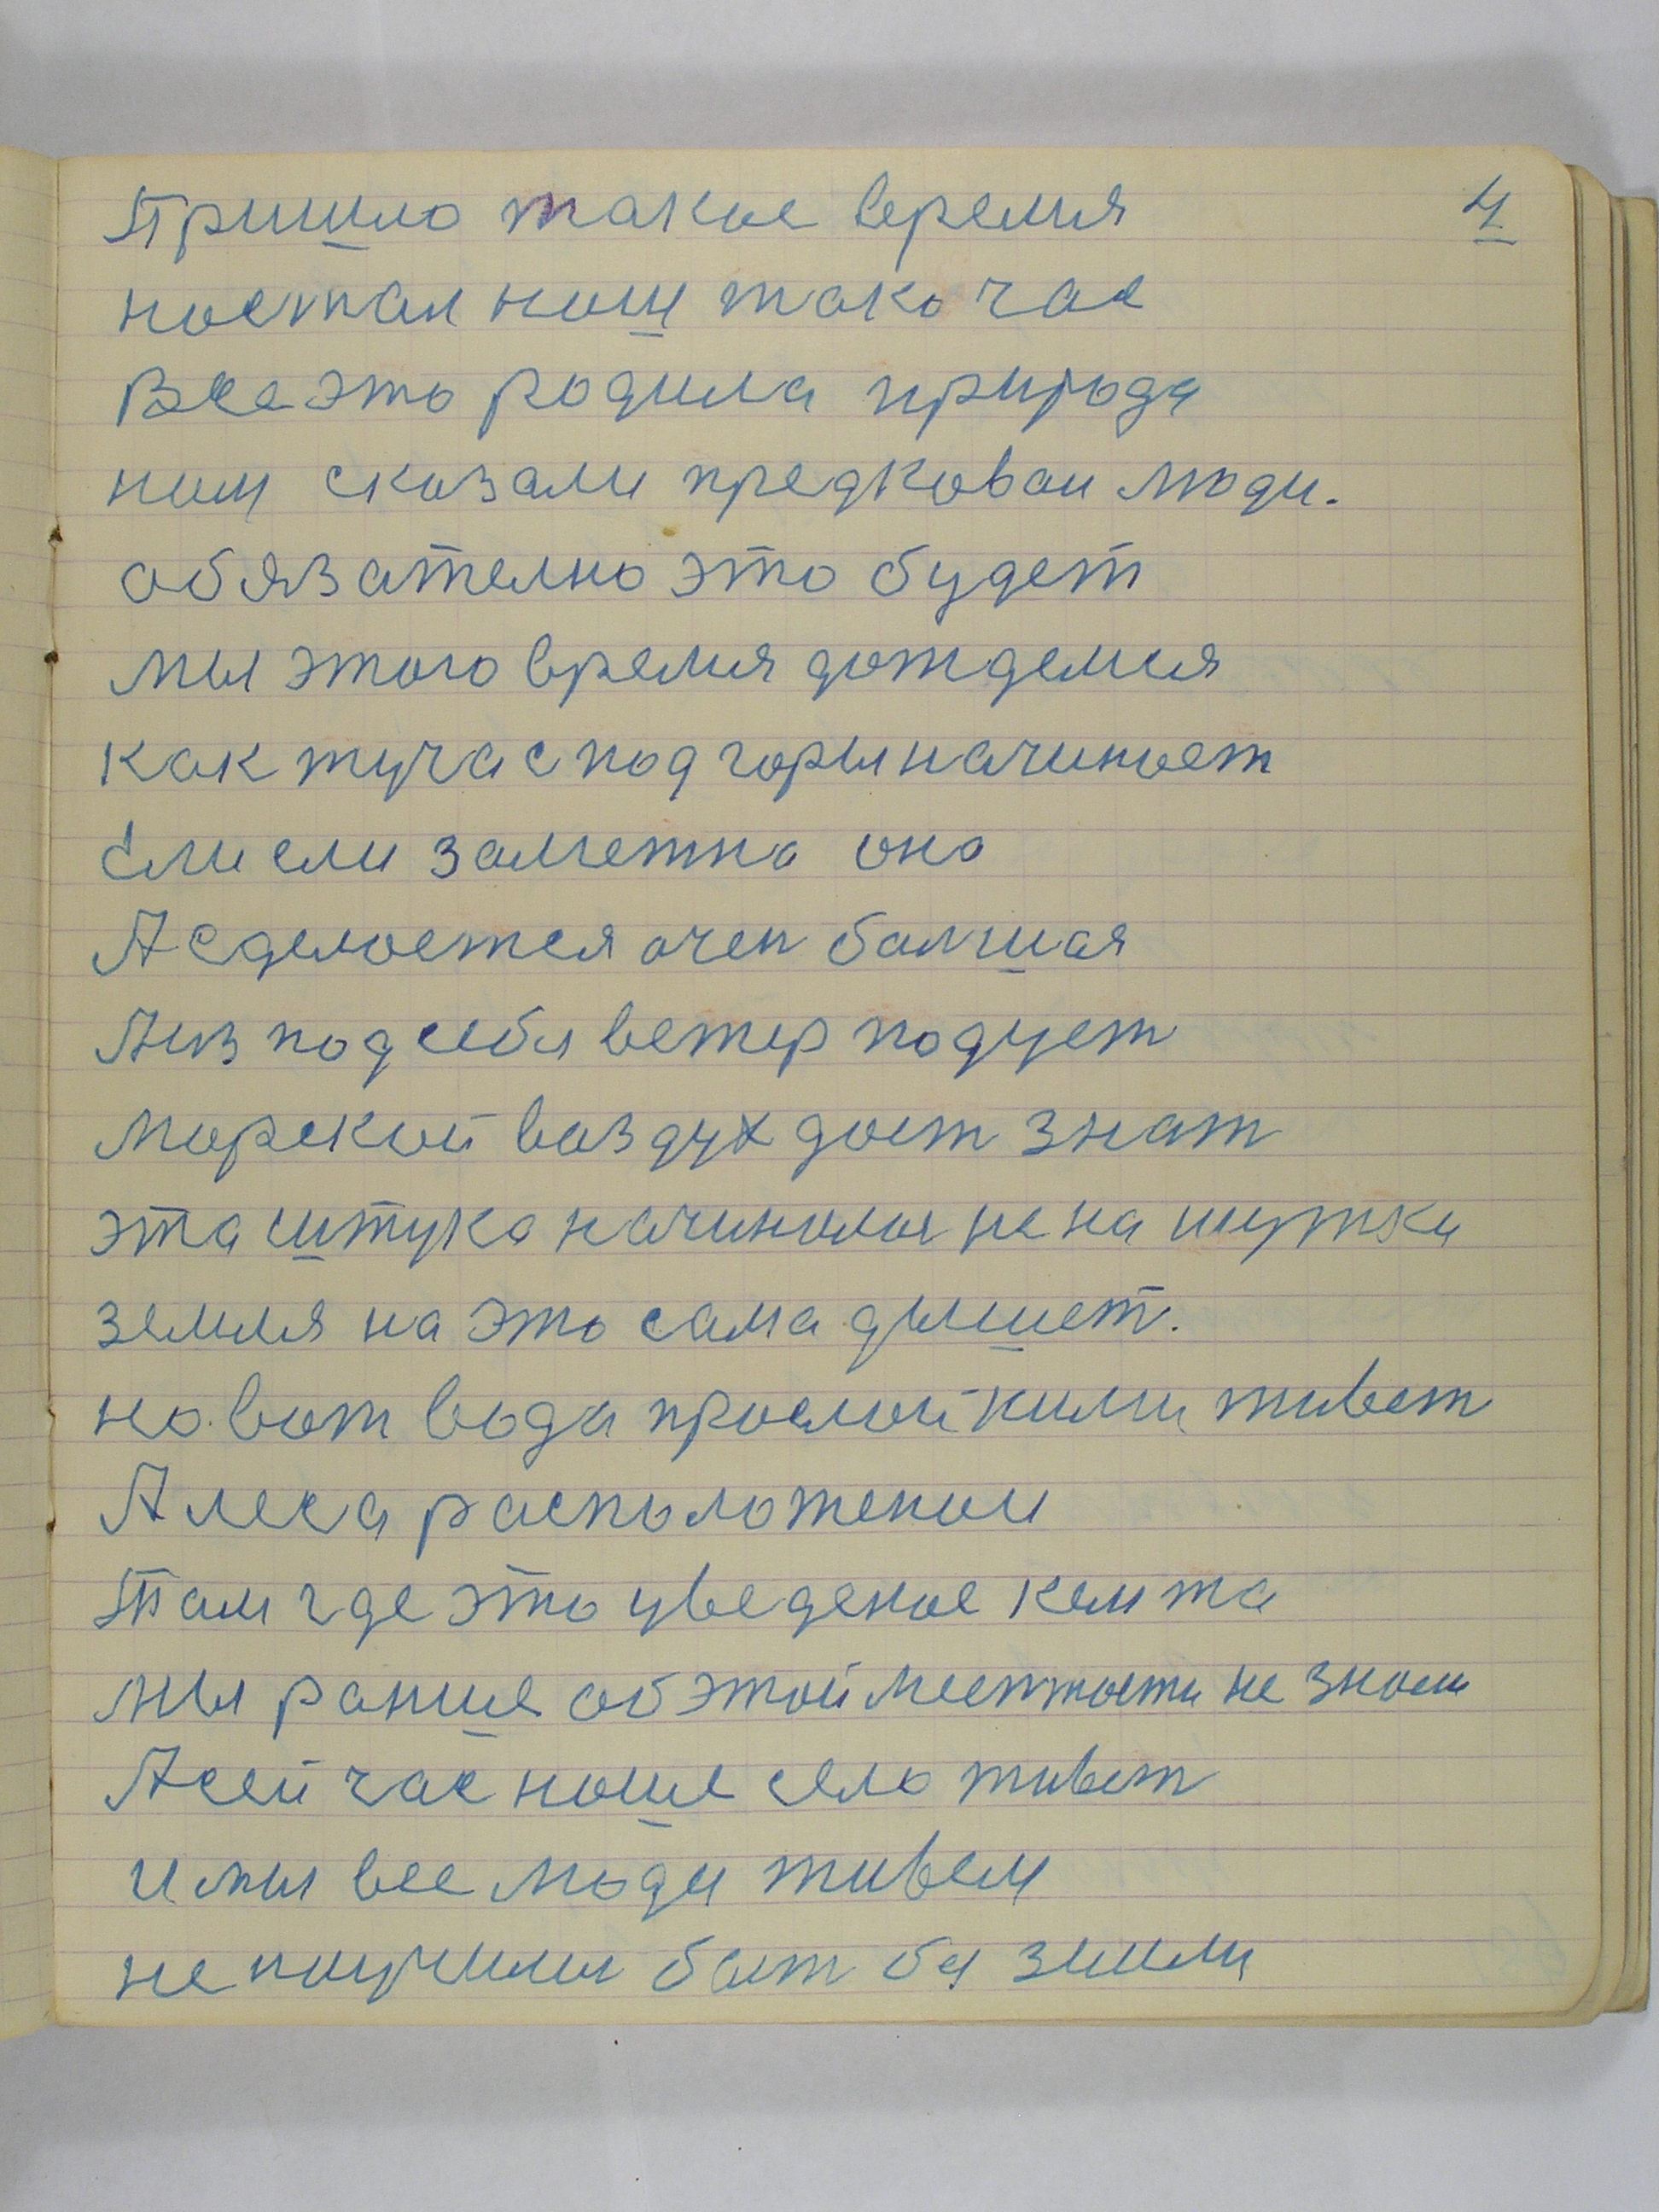 Пришло такое время 4
настал наш тако час
Все это родила природа
нам сказали предковаи люди.
обязателно это будет
мы этого время дождемся
как туча с под горы начинает
Ели ели заметно оно
А сделается очен балшая
А из под себя ветер подует
морской воздух дает знат
эта штука началась не на шутки
земля на это сама дышет.
но вот вода прослойками живет
А леса расположении
Там где это уведеное кем та
мы ранше об этой местности не знаем
А сей час наше село живет
и мы все люди живем
не получили бы земли